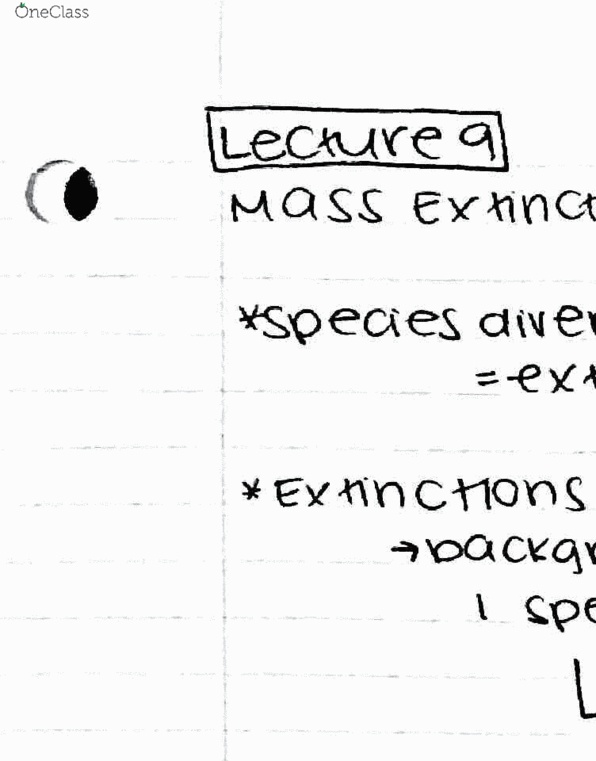 OneClass
Lecture 9
Mass Extinct
*Species diver
= ext
*Extinctions
→ backgr
1 spe